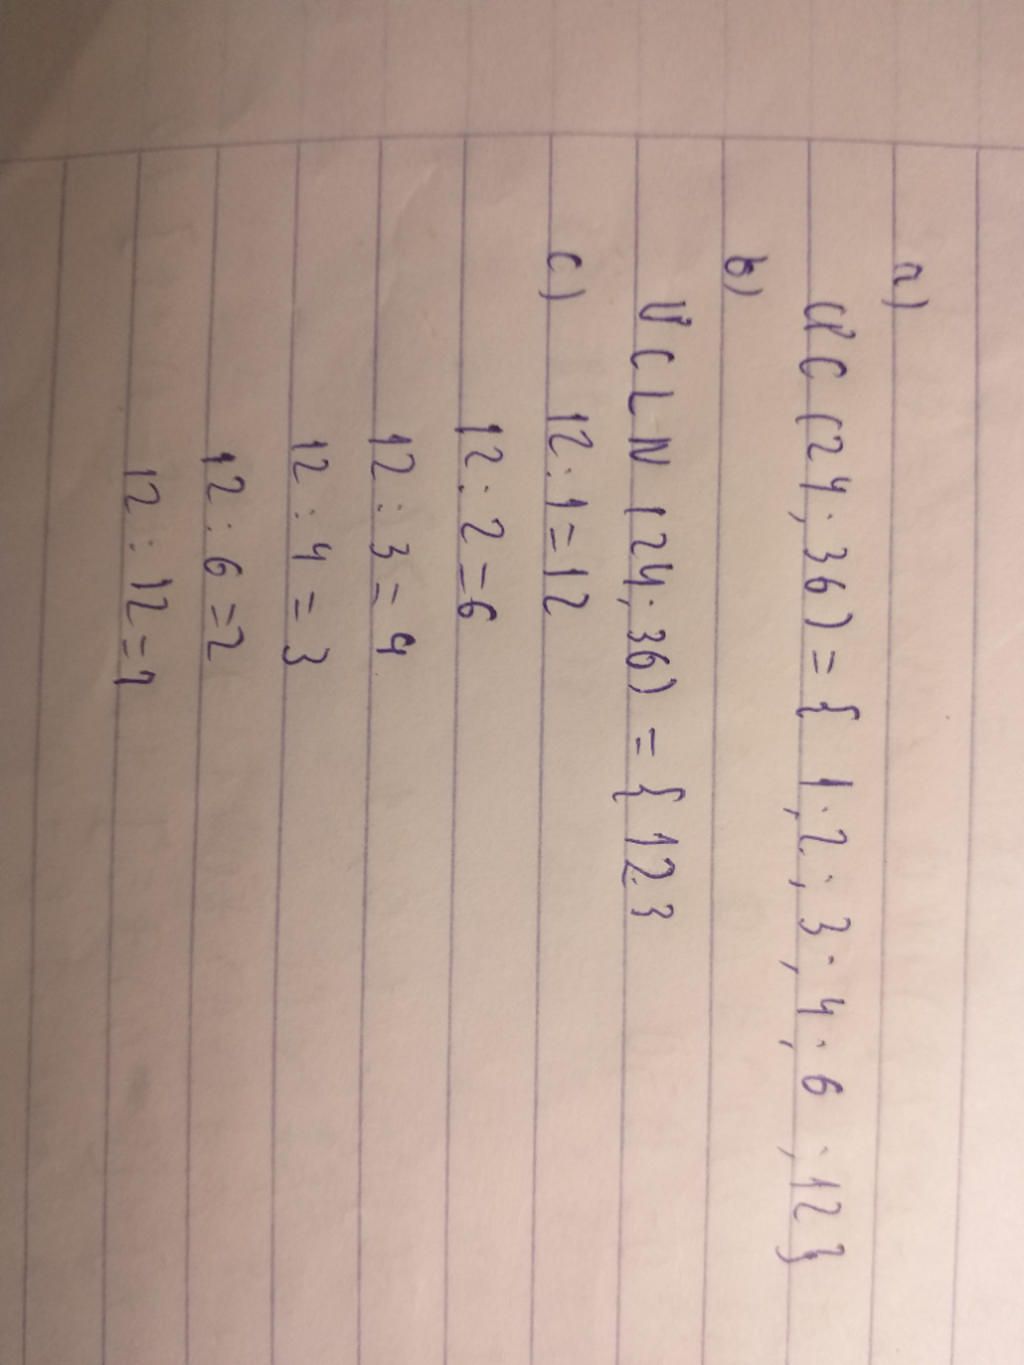 a)
ƯC (24; 36) = { 1; 2; 3; 4; 6; 12}
b)
ƯCLN (24; 36) = { 12 }
c) 12 : 1 = 12
12 : 2 = 6
12 : 3 = 4
12 : 4 = 3
12 : 6 = 2
12 : 12 = 1